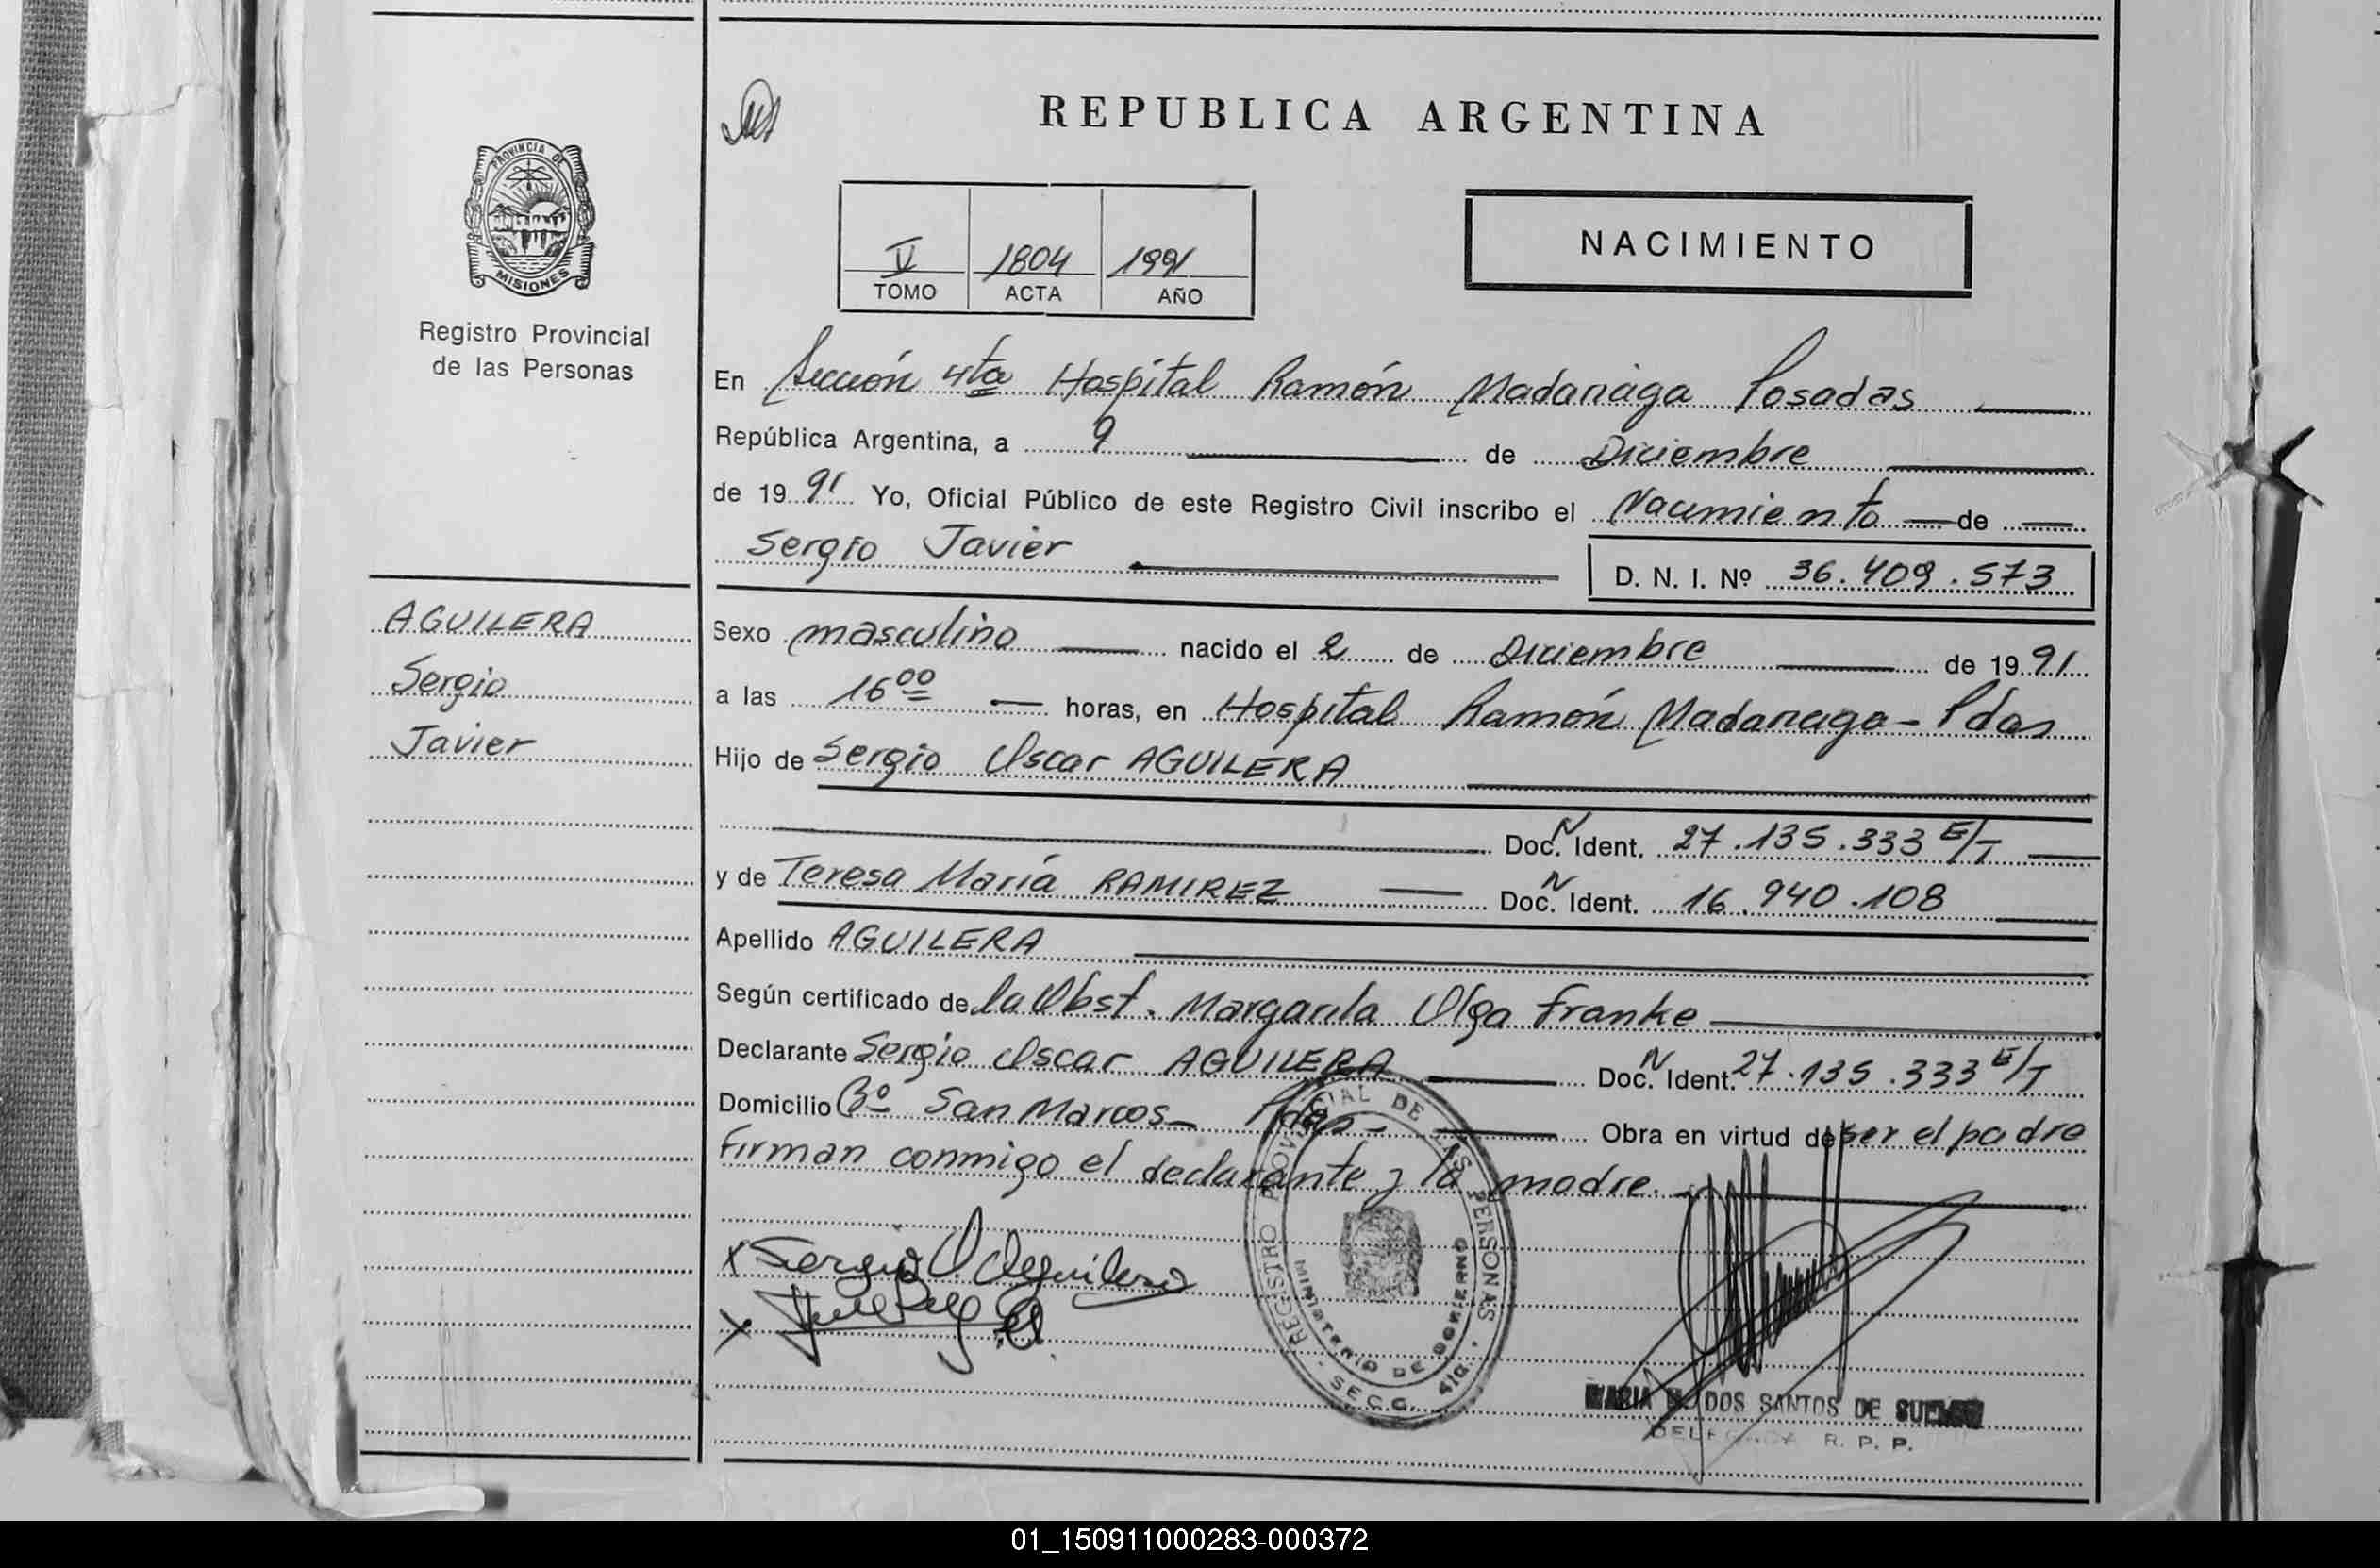 REPUBLICA ARGENTINA
PROVINCIA DE
MISIONES
Registro Provincial
de las Personas
V 1804 1991
TOMO ACTA AÑO
NACIMIENTO
En Sección 4ta Hospital Ramón Madariaga Posadas
República Argentina, a 9 de Diciembre
de 1991 Yo, Oficial Público de este Registro Civil inscribo el Nacimiento de
Sergio Javier
D. N. I. Nº 36.409.573
AGUILERA
Sergio
Javier
Sexo masculino nacido el 2 de Diciembre de 1991
a las 16 00 horas, en Hospital Ramón Madariaga - Pdas
Hijo de Sergio Oscar AGUILERA
Doc. N Ident. 27.135.333 E/T
y de Teresa María RAMIREZ Doc. N Ident. 16.940.108
Apellido AGUILERA
Según certificado de la Obst. Margarita Olga Franke
Declarante Sergio Oscar AGUILERA Doc. N Ident. 27.135.333 E/T
Domicilio Bº San Marcos - Pdas - Obra en virtud de ser el padre
Firman conmigo el declarante y la madre.
x Sergio O. Aguilera
x
REGISTRO PROVINCIAL DE LAS PERSONAS
MINISTERIO DE GOBIERNO
SECC. 4ta.
MARIA DOS SANTOS DE
DELEGADA R. P. P.
01_150911000283-000372